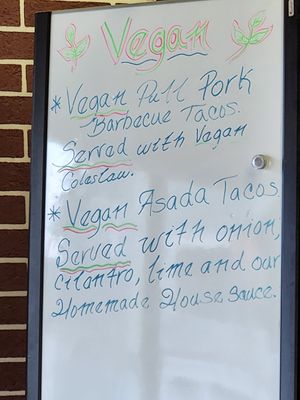 Vegan
* Vegan Pull Pork
Barbecue Tacos.
Served with Vegan
Coleslaw.
* Vegan Asada Tacos
Served with onion,
cilantro, lime and our
Homemade House sauce.